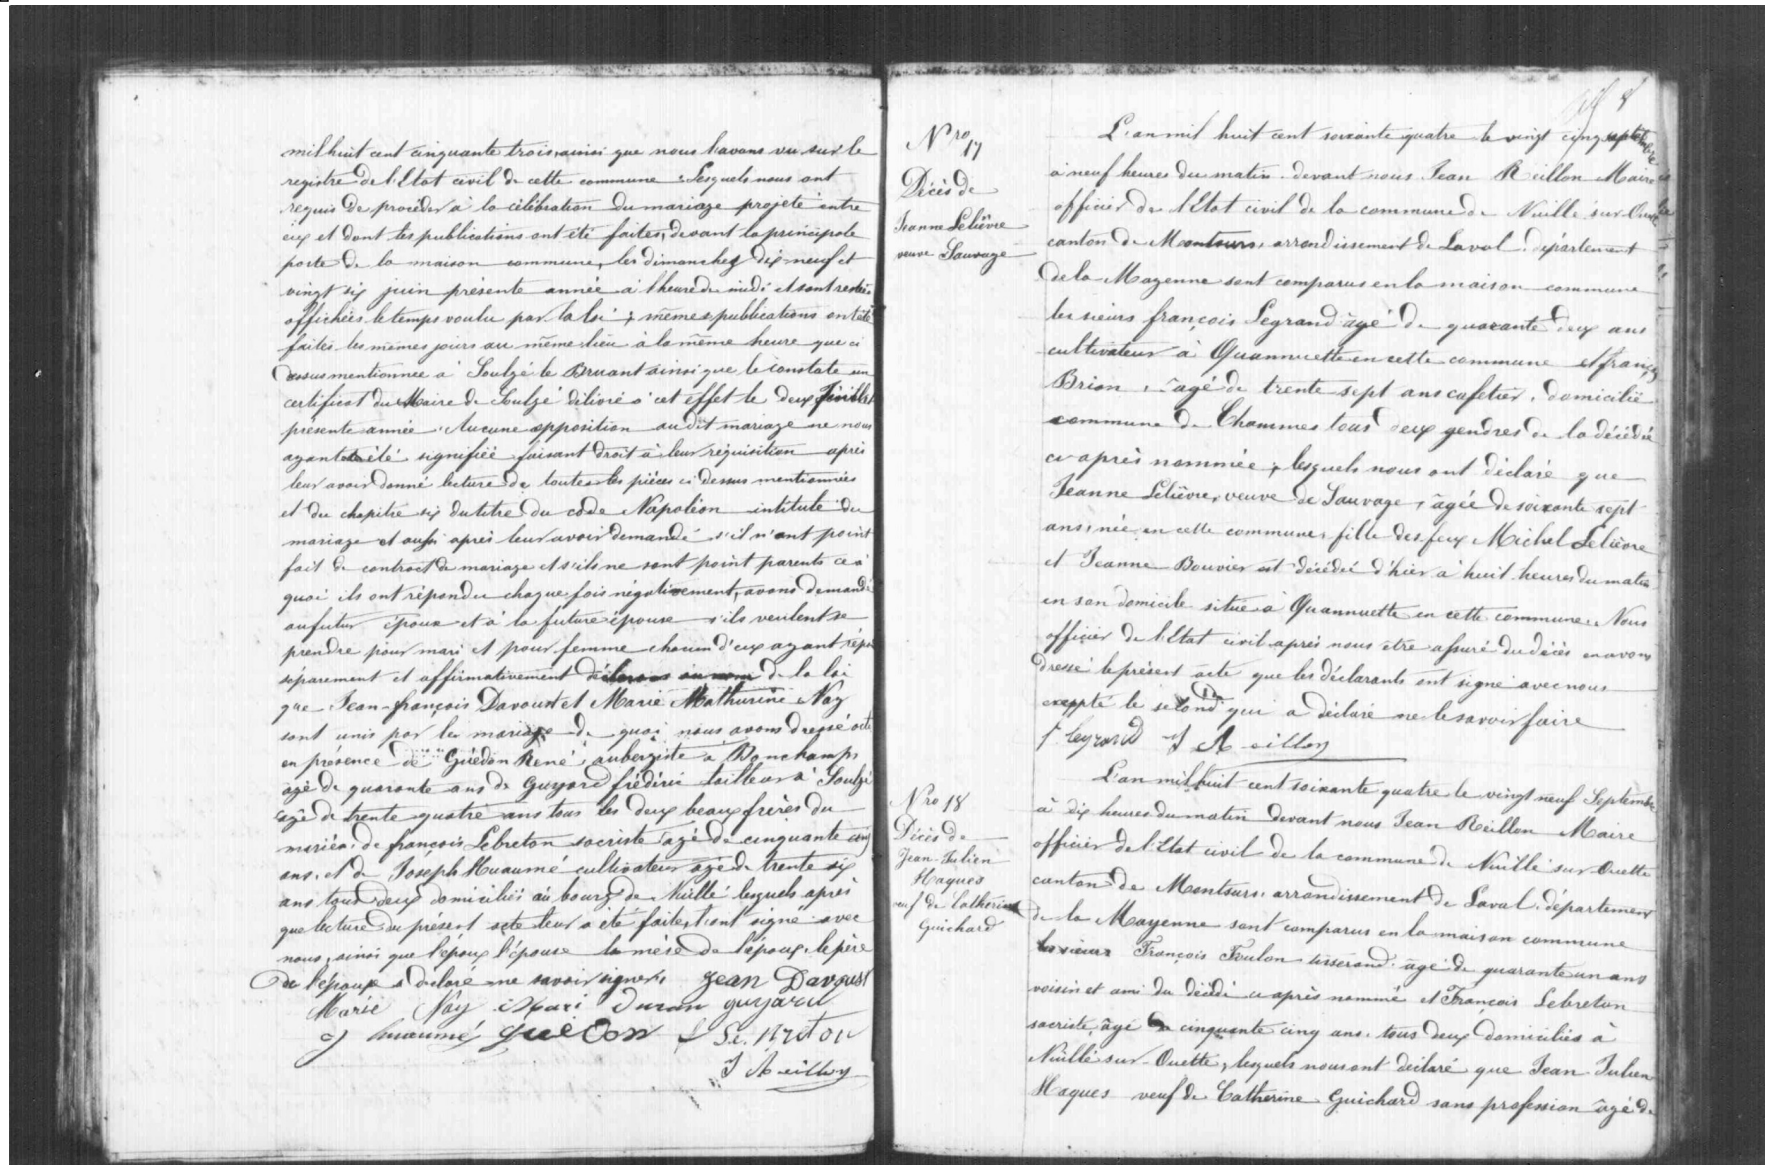 mil huit cent cinquante trois, ainsi que nous l'avons vu sur le
registre de l'Etat civil de cette commune. Lesquels nous ont
requis de procéder à la célébration du mariage projeté entre
eux et dont les publications ont été faites, devant la principale
porte de la maison commune, les dimanches dix-neuf et
vingt six juin présente année à l'heure de midi et sont restées
affichées le temps voulu par la loi; mêmes publications ont été
faites les mêmes jours au même lieu à la même heure que ci
dessus mentionnée à Soulgé le Bruant ainsi que le constate un
certificat du Maire de Soulgé délivré à cet effet le deux Juillet
présente année. Aucune opposition au dit mariage ne nous
ayant été signifiée faisant droit à leur réquisition après
leur avoir donné lecture de toutes les pièces ci dessus mentionnées
et du chapitre six du titre du code Napoléon intitulé du
mariage et aussi après leur avoir demandé s'il n'ont point
fait de contract de mariage et s'ils ne sont point parents ce à
quoi ils ont répondu chaque fois négativement, avons demandé
au futur époux et à la future épouse s'ils veulent se
prendre pour mari et pour femme chacun d'eux ayant répo
séparement et affirmativement déclarons au nom de la loi
que Jean-françois Davoust et Marie Mathurine Nay
sont unis par le mariage de quoi nous avons dressé acte
en présence de Guédon René aubergiste à Bonchamps
agé de quarante ans de Guyard frédéric tailleur à Soulgé
agé de trente quatre ans tous les deux beaux frères du
mariéa. de françois Lebreton sacriste agé de cinquante cinq
ans, et de Joseph Huaumé cultivateur agé de trente six
ans tous deux domiciliés au bourg de Nuillé lesquels après
que lecture du présent acte leur a été faite, l'ont signé avec
nous, ainsi que l'époux l'épouse la mère de l'époux, le père
de l'épouse a déclaré ne savoir signer. Jean Davoust
Marie Nay guyard
J huaumé guedon f Le Breton
J Reillon
8
Nro 17
Décès de
Jeanne Lelièvre
veuve Sauvage
L'an mil huit cent soixante quatre le vingt cinq septembre
à neuf heures du matin devant nous Jean Reillon Maire
officier de l'Etat civil de la commune de Nuillé sur Ouette
canton de Montsurs, arrondissement de Laval, département
de la Mayenne sont comparus en la maison commune
les sieurs françois Legrand âgé de quarante deux ans
cultivateur à Quannuette en cette commune et françois
Brion, âgé de trente sept ans cafetier, domicilié
commune de Chammes tous deux gendres de la décédée
ci-après nommée; lesquels nous ont déclaré que
Jeanne Lelièvre, veuve de Sauvage, âgée de soixante sept
ans, née en cette commune, fille des feux Michel Lelièvre
et Jeanne Bouvier est décédée d'hier à huit heures du matin
en son domicile situé à Quannuette en cette commune. Nous
officier de l'Etat civil après nous être assuré du décès en avons
dressé le présent acte que les déclarants ont signé avec nous
excepté le second qui a déclaré ne le savoir faire
f. legrand J Reillon
Nro 18
Décès de
Jean-Julien
Haques
veuf de Catherine
Guichard
L'an mil huit cent soixante quatre le vingt neuf Septembre
à dix heures du matin devant nous Jean Reillon Maire
officier de l'Etat civil de la commune de Nuillé sur Ouette
canton de Montsurs, arrondissement de Laval, département
de la Mayenne sont comparus en la maison commune
les sieurs François Foulon tisserand, âgé de quarante un ans
voisin et ami du décédé ci après nommé et François Lebreton
sacriste, âgé de cinquante cinq ans, tous deux domiciliés à
Nuillé-sur-Ouette, lesquels nous ont déclaré que Jean Julien
Haques veuf de Catherine Guichard sans profession âgé de